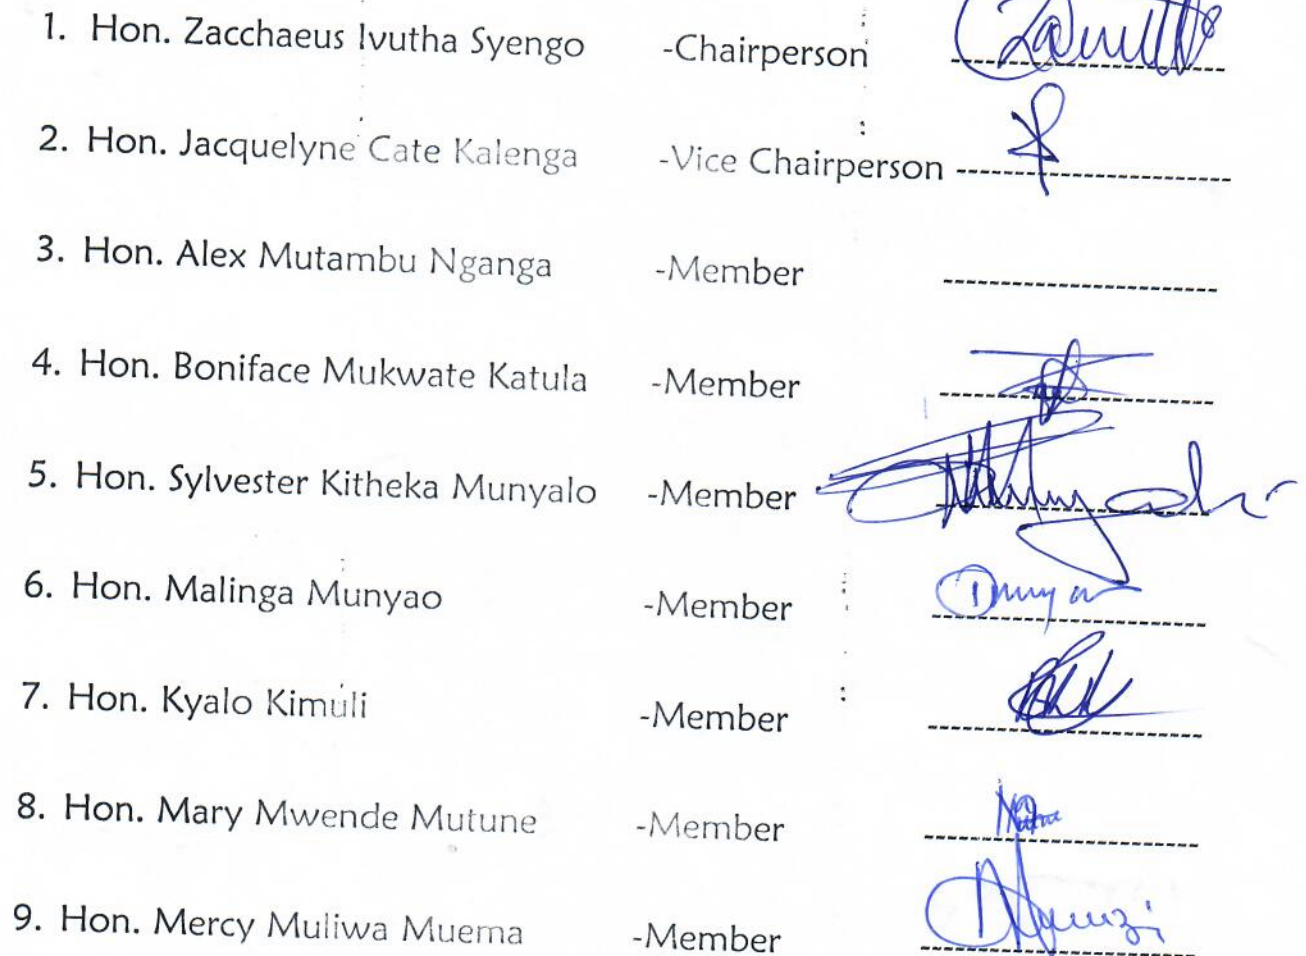 1. Hon. Zacchaeus Ivutha Syengo -Chairperson
2. Hon. Jacquelyne Cate Kalenga -Vice Chairperson
3. Hon. Alex Mutambu Nganga -Member
4. Hon. Boniface Mukwate Katula -Member
5. Hon. Sylvester Kitheka Munyalo -Member
6. Hon. Malinga Munyao -Member
7. Hon. Kyalo Kimuli -Member
8. Hon. Mary Mwende Mutune -Member
9. Hon. Mercy Muliwa Muema -Member